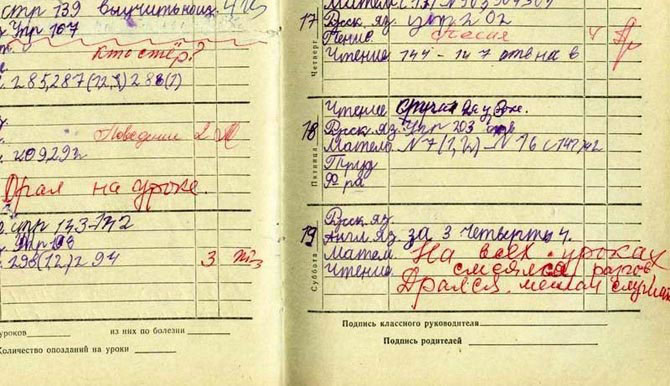 стр 139 выучить наиз.
Упр 167
Кто стёр?
285,287(12,3) 288(2)
Поведение 2
Орал на уроке.
стр 143-142
Упр
298(12) 294
3
уроков из них по болезни
Количество опозданий на уроки
17
Четверг
Русск яз. упр 202
Пение. Песня 4
Чтение 144-147 отв на в
18
Пятница
Чтение
Русск яз. Упр 203
Матем N7(1,2) N16 с 142
Труд
Физ ра
19
Суббота
Русск яз.
Англ яз за 3 четверть 4.
Матем На всех уроках
Чтение смеялся, разгов
Дрался, мешал слушат
Подпись классного руководителя
Подпись родителей